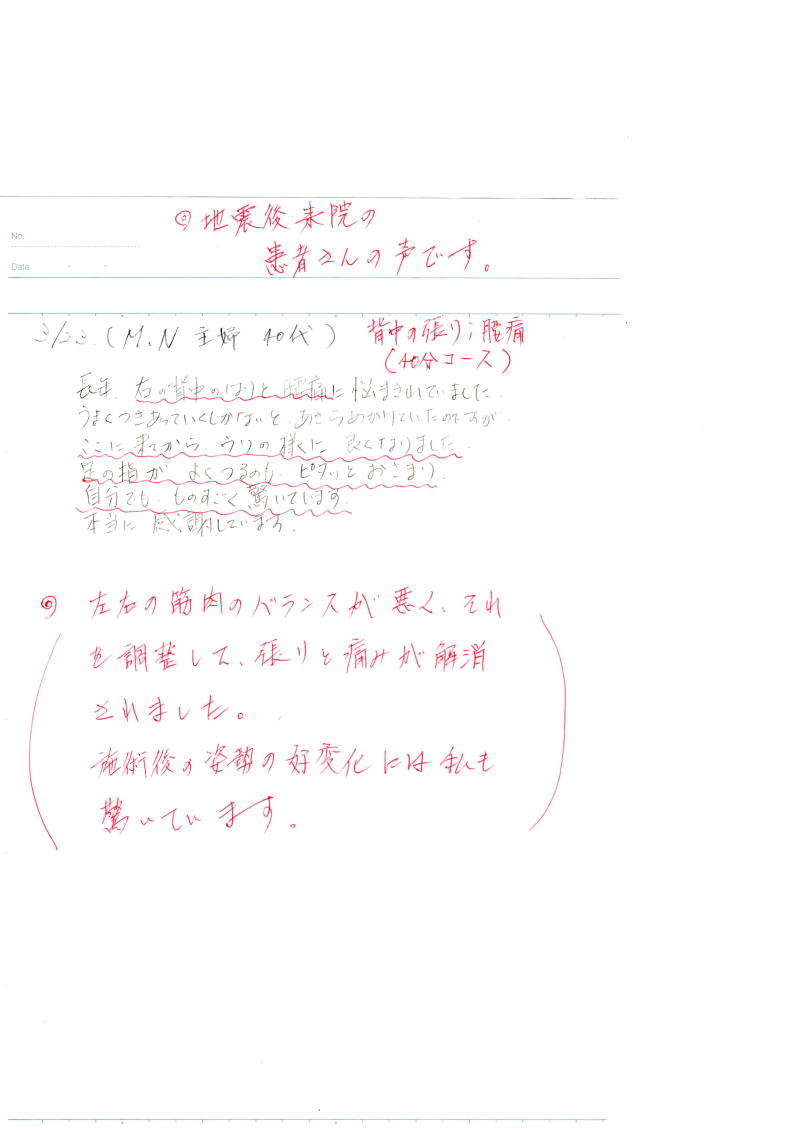 ◎地震後来院の
患者さんの声です。
No.
Date
3/23.(M、N 主婦 40代) 背中の張り;腰痛
(40分コース)
長年、右の背中のはりと、腰痛に悩まされていました。
うまくつきあっていくしかないと、あきらめかけていたのですが、
ここに来てから、ウソの様に良くなりました。
足の指が、よくつるのも、ピタッとおさまり、
自分でも、ものすごく驚いています。
本当に感謝しています。
◎ 左右の筋肉のバランスが悪く、それ
を調整して、張りと痛みが解消
されました。
施術後の姿勢の好変化には私も
驚いています。